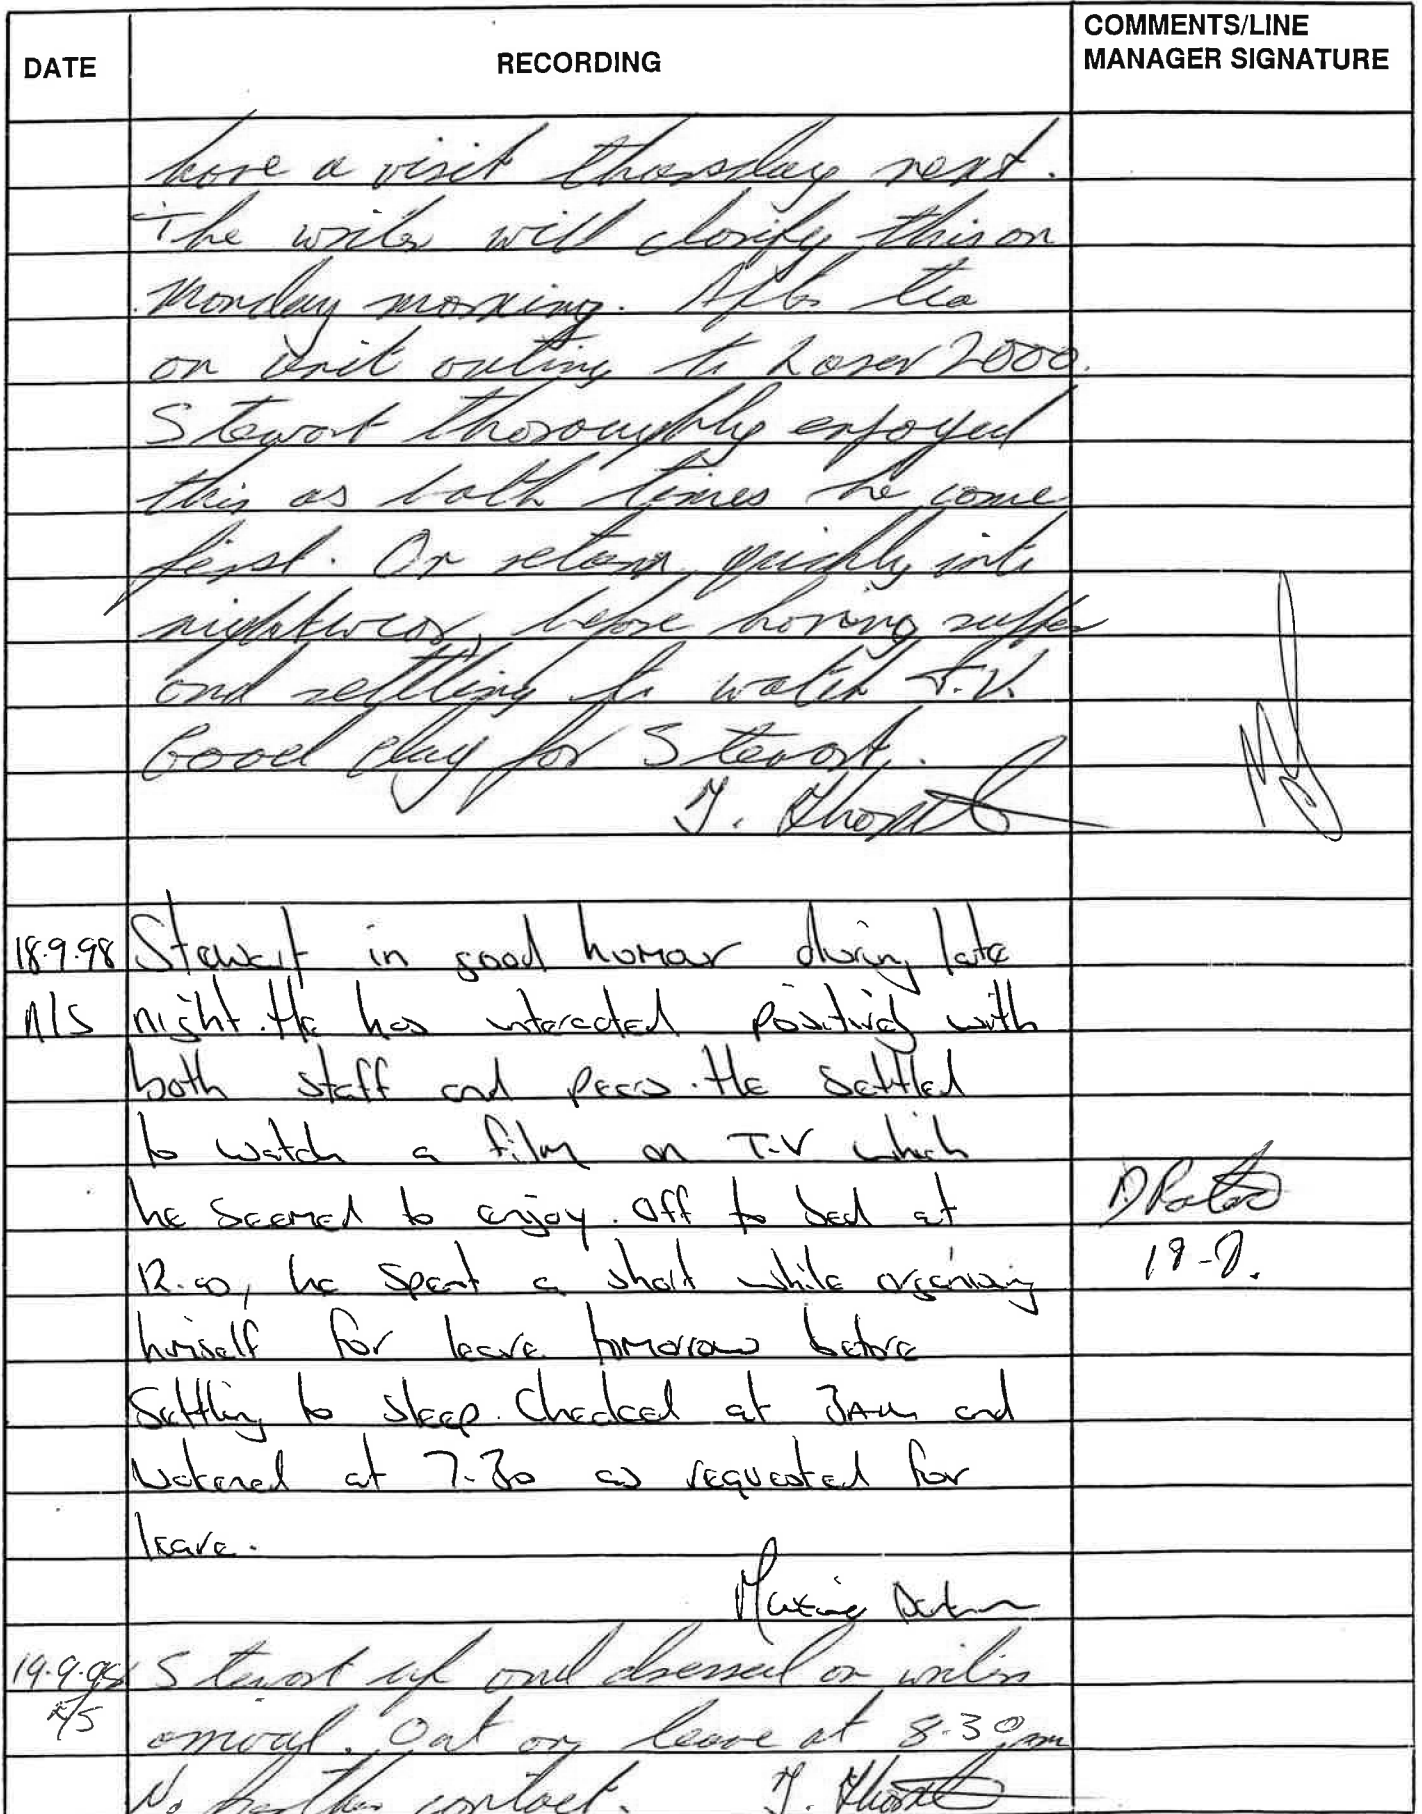 DATE
RECORDING
COMMENTS/LINE
MANAGER SIGNATURE
have a visit thursday next.
The writer will clarify this on
Monday morning. After tea
on unit outing to Laser 2000.
Stewart thoroughly enjoyed
this as both times he come
first. On return, quickly into
nightwear, before having supper
and settling to watch T.V.
Good day for Stewart.
T.
18.9.98 Stewart in good humor during late
N/S night. He has interacted positively with
both staff and peers. He settled
to watch a film on T.V which
he seemed to enjoy. Off to bed at
12.00, he spent a short while organising
himself for leave tomorrow before
settling to sleep. Checked at 3AM and
wakened at 7.30 as requested for
leave.
Maxine
19.9.98 Stewart up and dressed on writers
E/S arrival. Out on leave at 8.30am
No further contact. T.